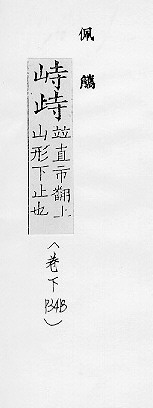 佩觿
峙歭
竝直市翻上
山形下止也
（卷下
）